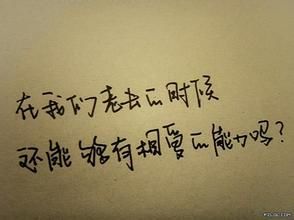 在我们老去的时候
还能够有相爱的能力吗？